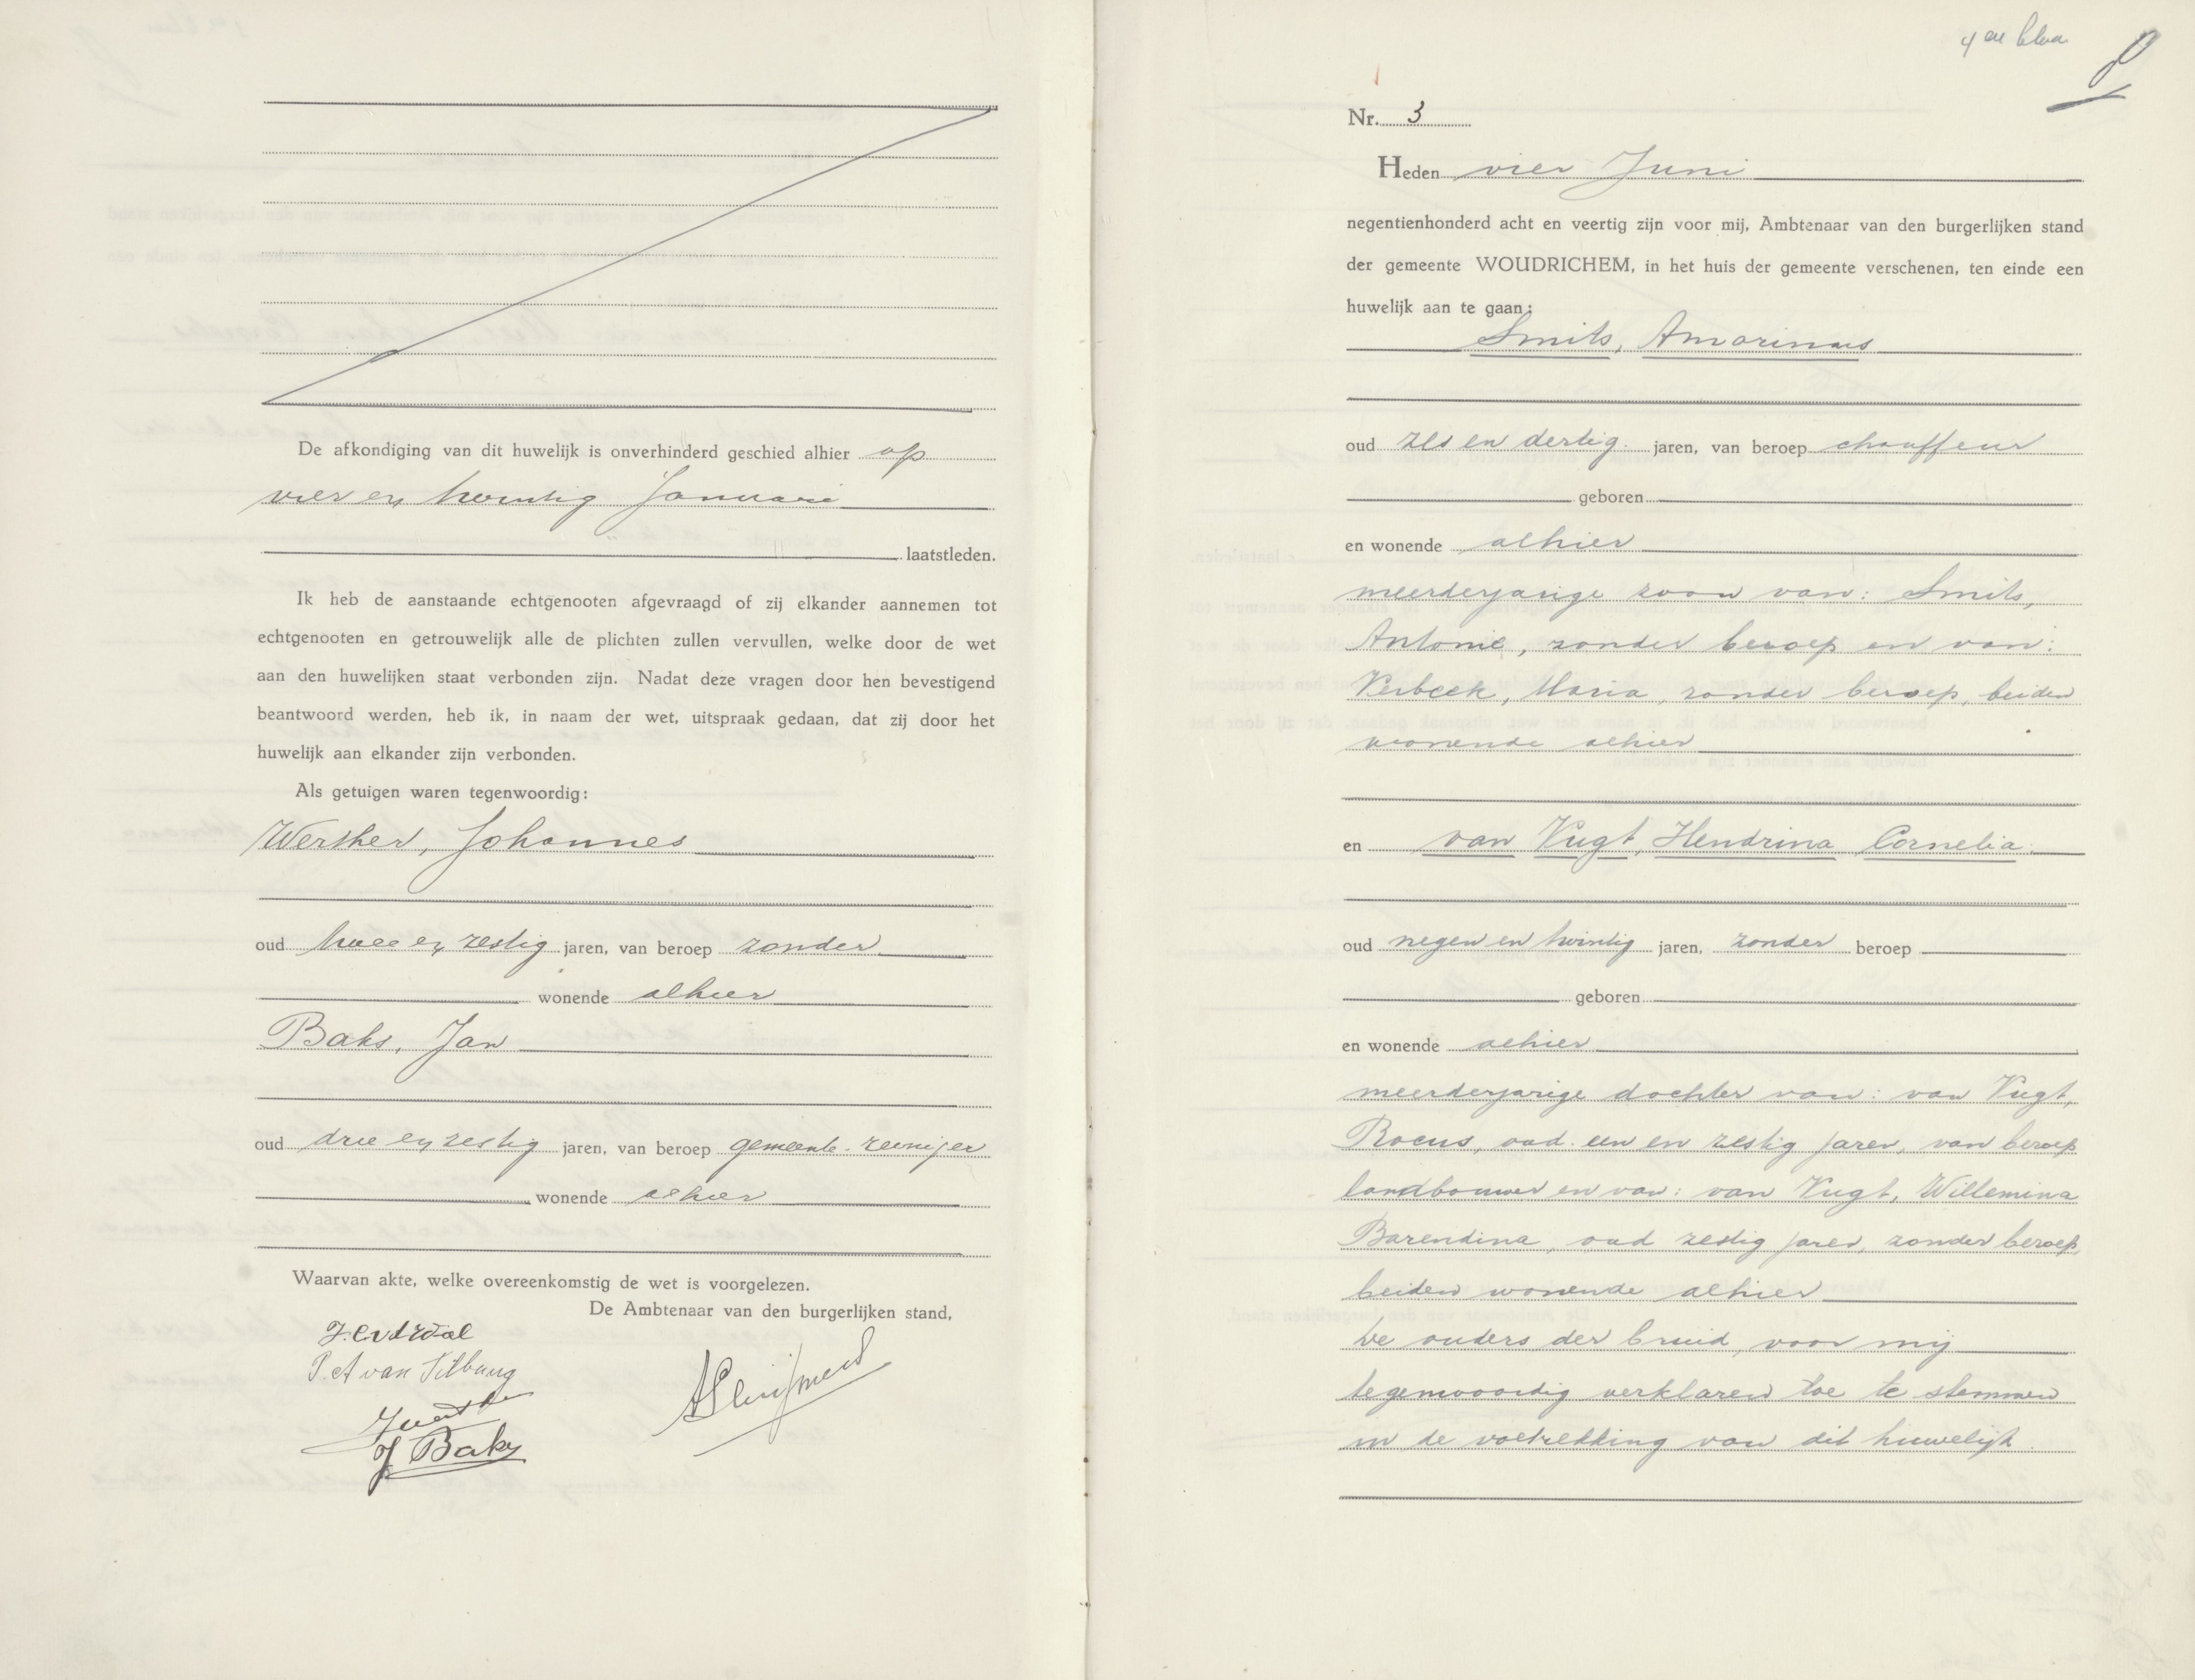 De afkondiging van dit huwelijk is onverhinderd geschied alhier op
vier en twintig Januari
laatstleden.
Ik heb de aanstaande echtgenooten afgevraagd of zij elkander aannemen tot
echtgenooten en getrouwelijk alle de plichten zullen vervullen, welke door de wet
aan den huwelijken staat verbonden zijn. Nadat deze vragen door hen bevestigend
beantwoord werden, heb ik, in naam der wet, uitspraak gedaan, dat zij door het
huwelijk aan elkander zijn verbonden.
Als getuigen waren tegenwoordig:
Werther, Johannes
oud twee en zestig jaren, van beroep zonder
wonende alhier
Baks, Jan
oud drie en zestig jaren, van beroep gemeente-reiniger
wonende alhier
Waarvan akte, welke overeenkomstig de wet is voorgelezen.
De Ambtenaar van den burgerlijken stand,
P. A van Tilburg
J Baks
4de blad
Nr. 3
Heden vier Juni
negentienhonderd acht en veertig zijn voor mij, Ambtenaar van den burgerlijken stand
der gemeente WOUDRICHEM, in het huis der gemeente verschenen, ten einde een
huwelijk aan te gaan:
Smits, Amarinus
oud zes en dertig jaren, van beroep chauffeur
geboren
en wonende alhier
meerderjarige zoon van: Smits,
Antonie, zonder beroep en van:
Verbeek, Maria, zonder beroep, beiden
wonende alhier
en van Vugt, Hendrina Cornelia
oud negen en twintig jaren, zonder beroep
geboren
en wonende alhier
meerderjarige dochter van: van Vugt,
Rocus, oud een en zestig jaren, van beroep
landbouwer en van: van Vugt, Willemina
Barendina, oud zestig jaren, zonder beroep,
beiden wonende alhier
De ouders der bruid, voor mij
tegenwoordig verklaren toe te stemmen
in de voltrekking van dit huwelijk